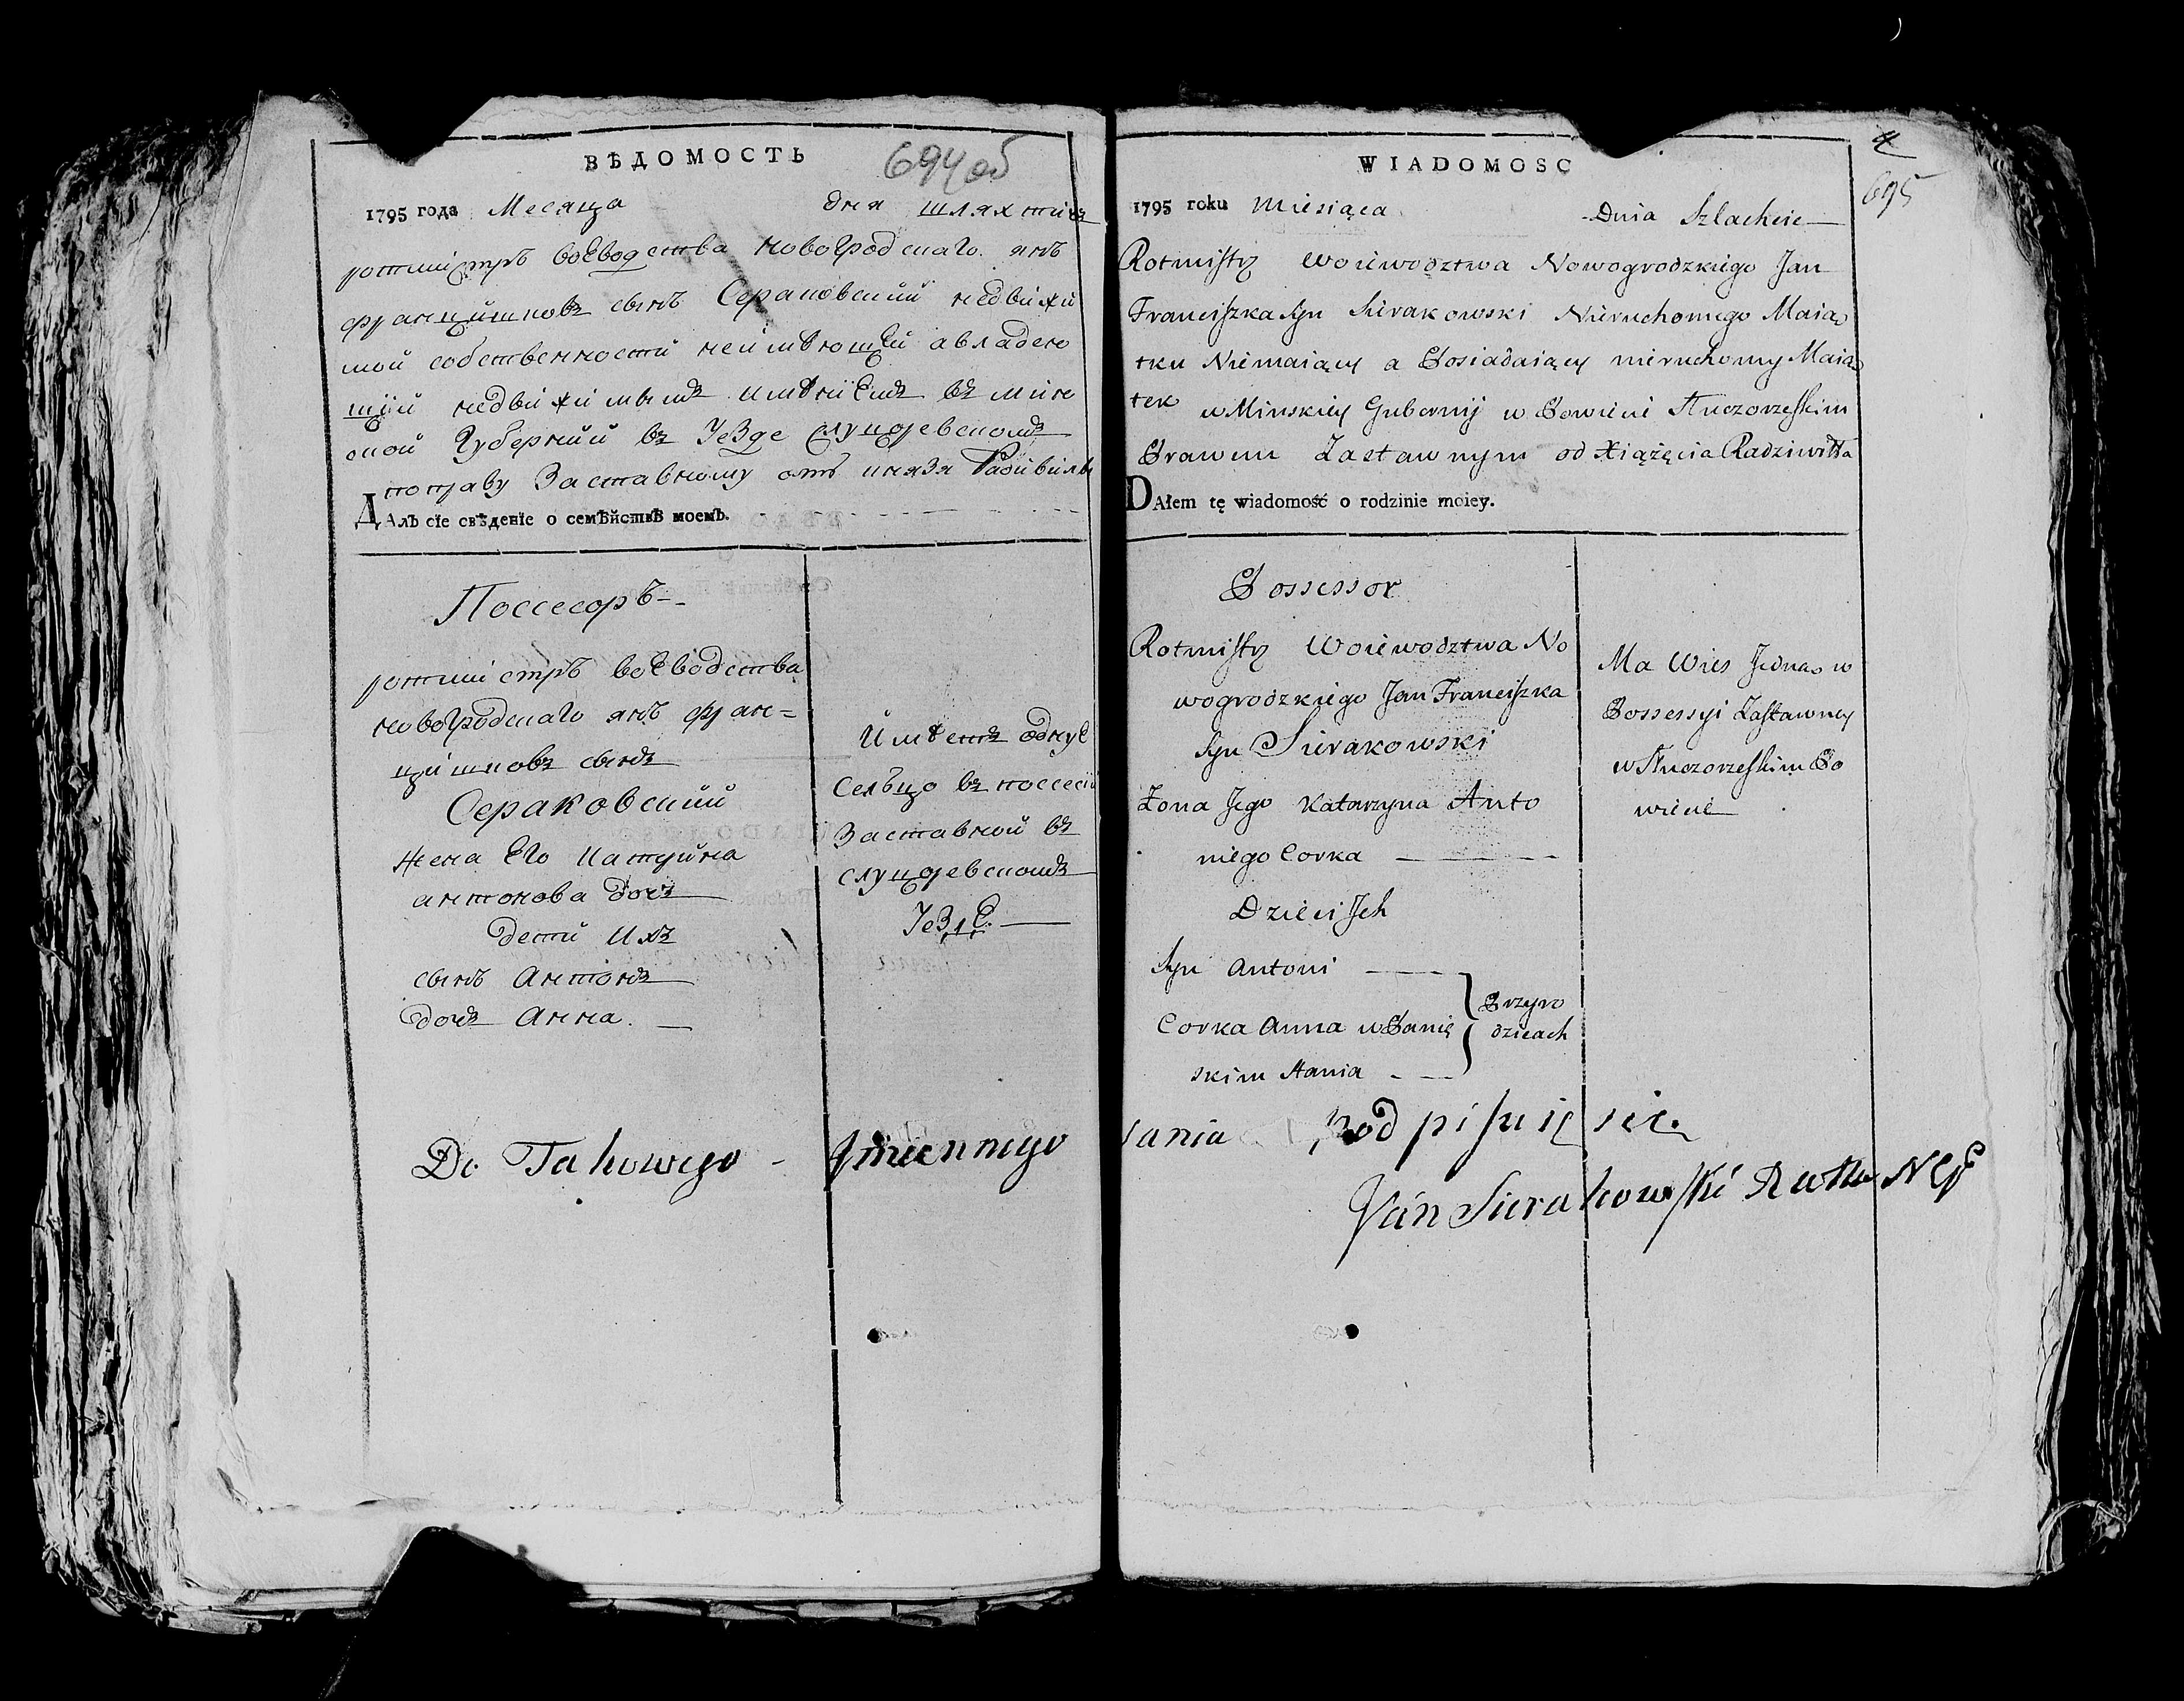 ВѢДОМОСТЬ
694 об
1795 года Месяца дня шляхтичъ
ротмистръ воеводства новогродскаго янъ
францишковъ сынъ Сераковский недвижи
мой собственности неимеющей авладею
щий недвижимымъ имѣниемъ въ минс
кой губернии въ уезде слуцоревскомъ
поправу Заставному отъ князя Радивила
ДАлъ сїе свѣденїе о семѣйствѣ моемъ.
Поссесоръ
ротмистръ воеводства
новогродскаго янъ фран=
цишковъ сынъ
Сераковский
жена Его
антонова дочъ
дети ихъ
сынъ Антонъ
дочъ Анна.
Имѣетъ одну
сельцо въ поссесии
Заставной въ
слуцоревскомъ
Do Takowego - Jmiennego
WIADOMOSC
4
695
1795 roku Miesiąca Dnia Szlachcic
Rotmistrz Woiewodztwa Nowogrodzkiego Jan
Franciszka Syn Sierakowski Nieruchomego Maią
tku Niemaiący a Posiadaiący nieruchomy Maią
tek w Minskiey Gubernij w Powiecie Słuczorzeskim
Prawem Zastawnym od Xiążęcia Radziwiłła
DAłem tę wiadomość o rodzinie moiey.
Possessor
Rotmistrz Woiewodztwa No
wogrodzkiego Jan Franciszka
Syn Sierakowski
Zona Jego Katarzyna Anto
niego Corka
Dzieci Jch
Syn Antoni
Corka Anna w Panię
skim Stania
Przyro
dzicach
Ma Wies Jedną w
Possessyi Zastawney
w Słuczorzeskim Po
wiecie
Stania podpisuię się
Jan Sierakowski